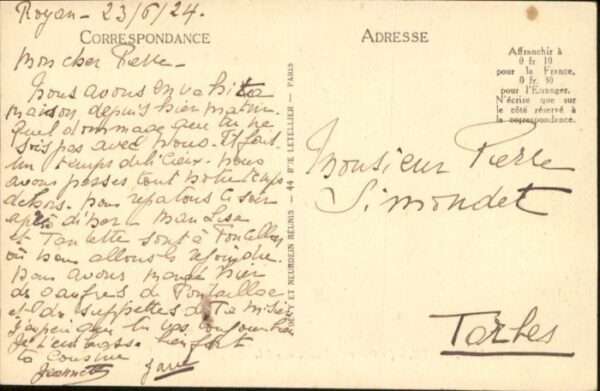 Royan - 23/6/24.
CORRESPONDANCE
Mon cher Pierre -
Nous avons envahi ta
maison depuis hier matin.
Quel dommage que tu ne
sois pas avec nous. Il fait
un temps délicieux. Nous
avons passés tout notre temps
dehors. Nous repartons ce soir
après dîner. Man Lisa
et Tantette sont à
où nous allons les rejoindre.
Nous avons mangé hier
des gaufres de Pontaillac
et des
J'espère que tu vas
Je t'embrasse bien fort
ta cousine
Jeannette
ADRESSE
Affranchir à
0 fr 10
pour la France,
0 fr. 30
pour l'Étranger.
N'écrire que sur
le côté réservé à
la correspondance.
Monsieur Pierre
Simondet
Tarbes
LÉVY ET NEURDEIN RÉUNIS — 44 RUE LETELLIER — PARIS